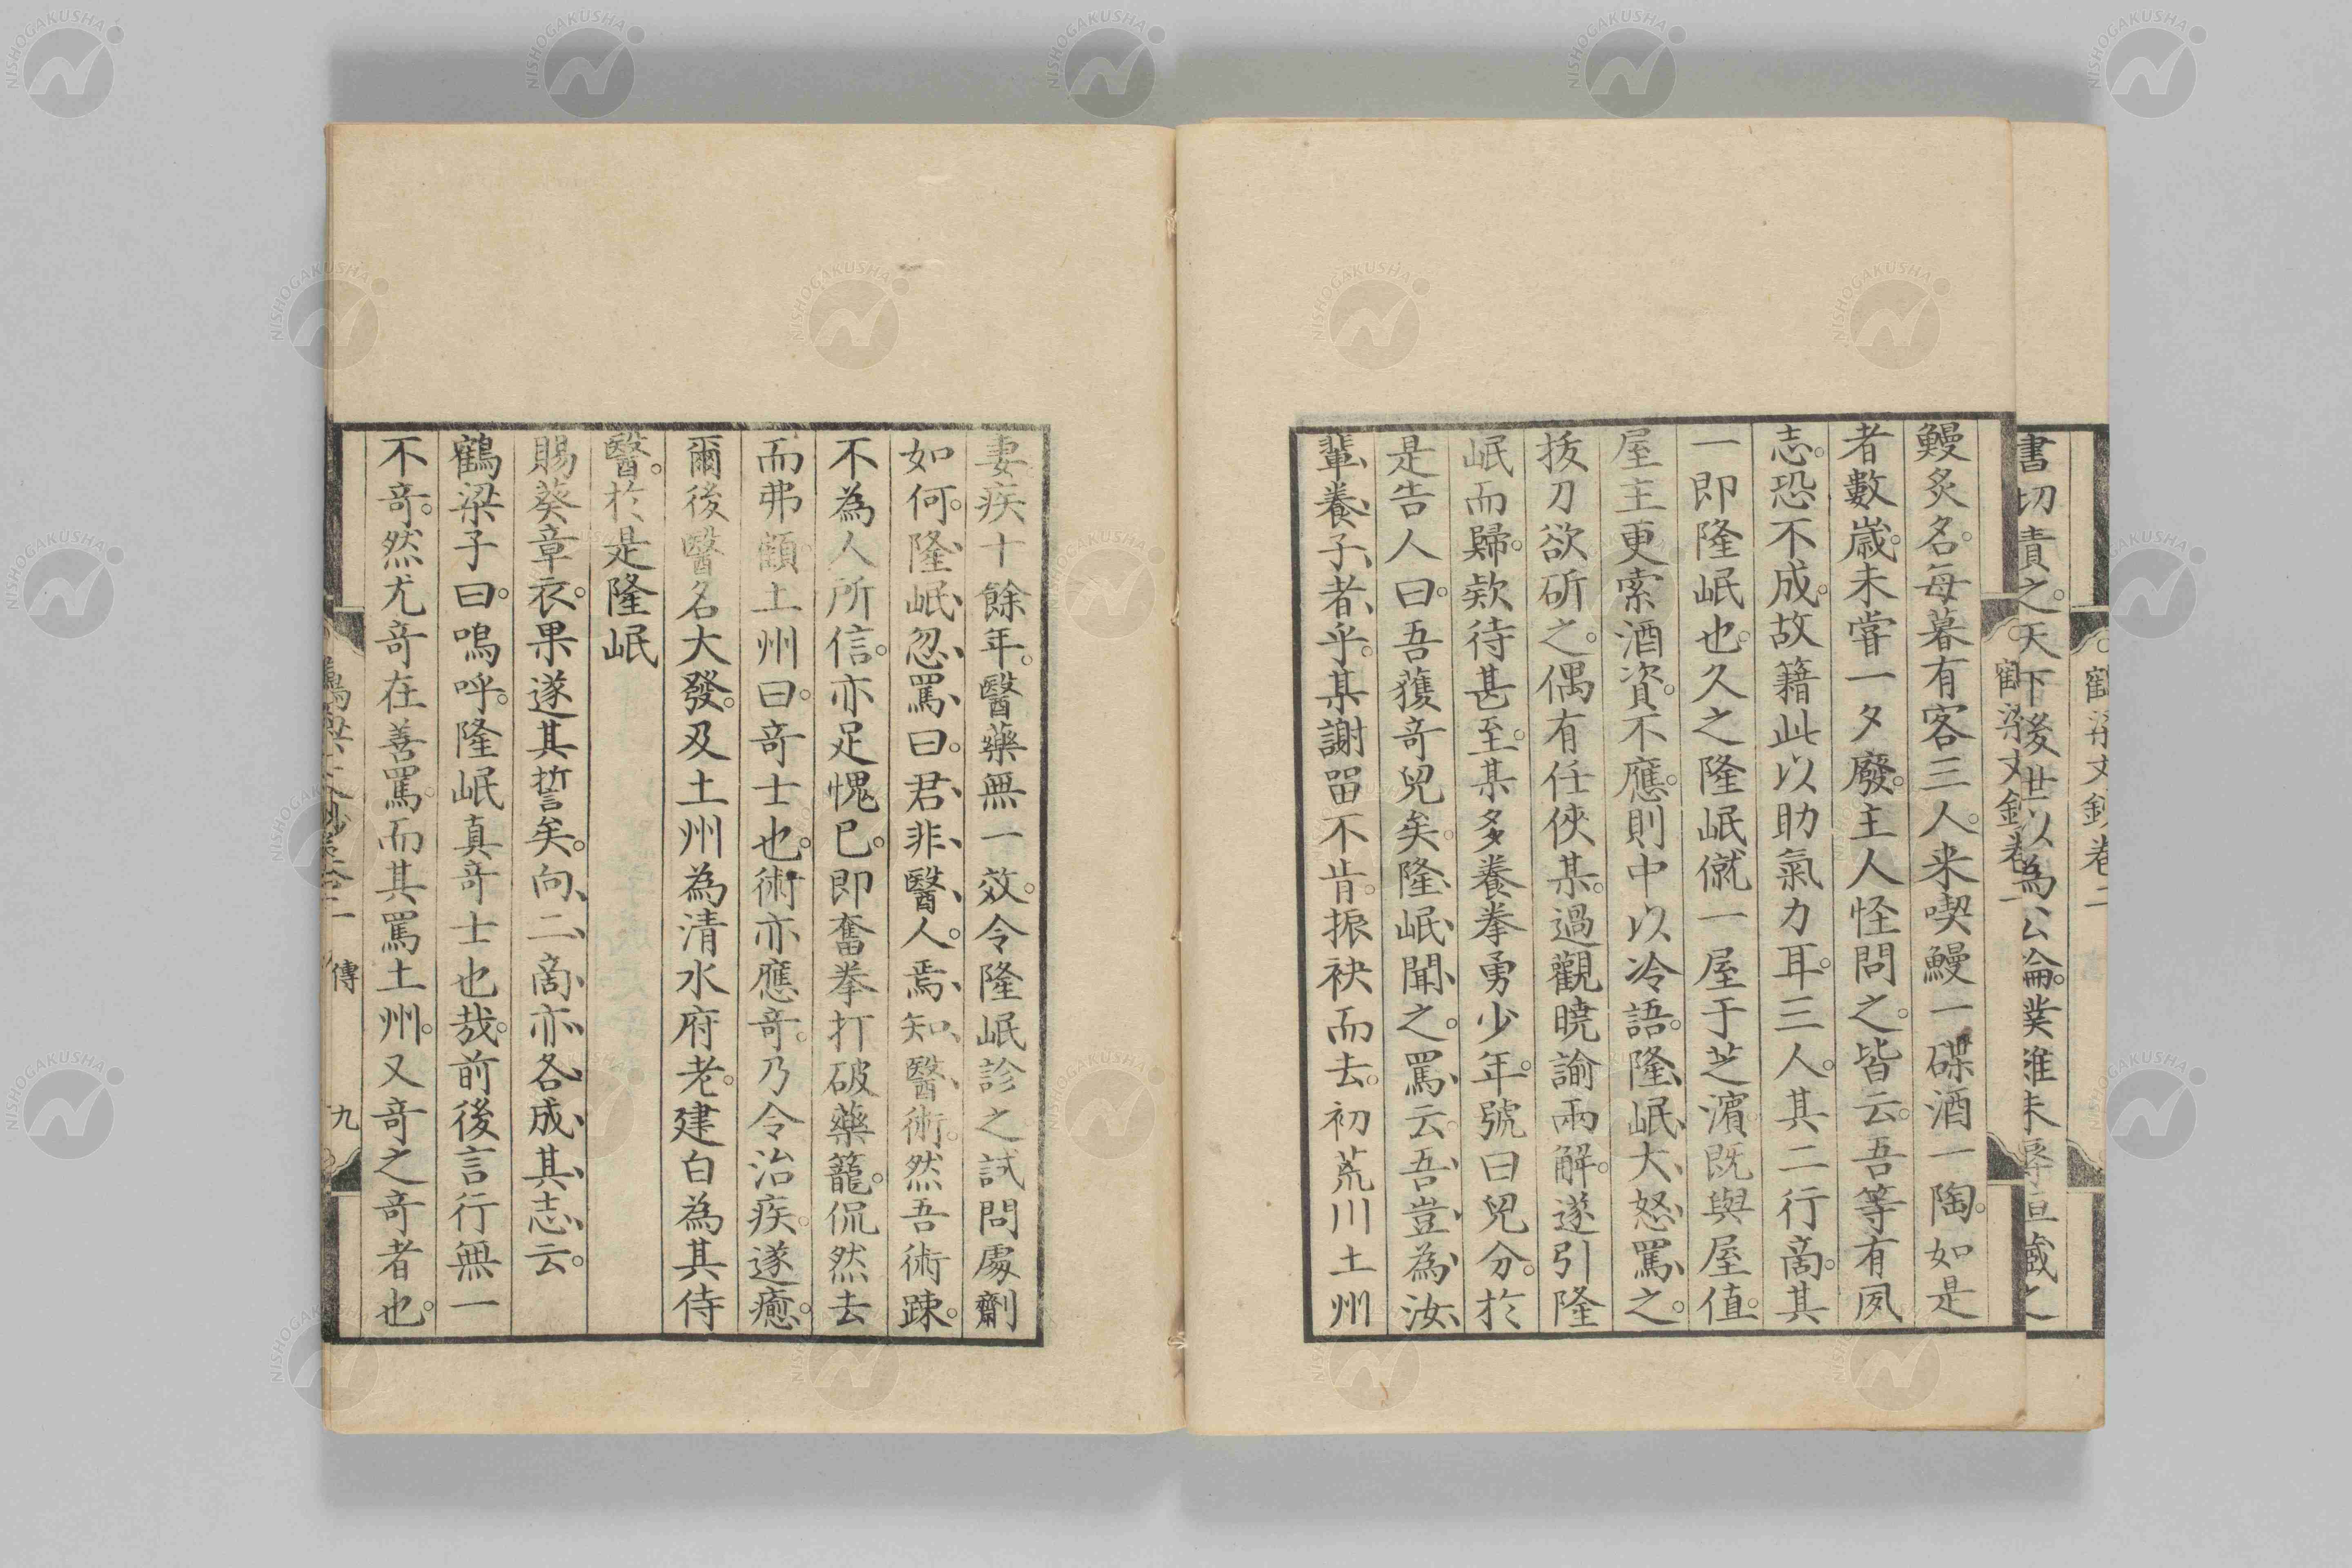 鰻炙名。每暮有客三人。来喫鰻一碟酒一陶。如是
者數歳。未甞一夕廢。主人怪問之。皆云。吾等有夙
志。恐不成。故籍此以助氣力耳。三人。其二行啇。其
一即隆岷也。久之隆岷僦一屋于芝濵既與屋值。
屋主更索酒資。不應。則中以冷語。隆岷大怒罵之。
拔刀欲斫之。偶有任俠某。過觀曉諭兩解。遂引隆
岷而歸。欵待甚至。某多養拳勇少年。號曰兒分。於
是告人曰。吾獲竒兒矣。隆岷聞之。罵云。吾豈為汝
輩養子者乎。某謝畱不肯。振袂而去。初荒川土州
妻疾十餘年。醫藥無一效。令隆岷診之試問處劑
如何。隆岷忽罵曰。君非醫人。焉知醫術。然吾術踈。
不為人所信。亦足愧已。即奮拳打破藥籠。侃然去
而弗顧土州曰。竒士也。術亦應竒。乃令治疾。遂癒。
爾後醫名大發。及土州為清水府老。建白為其侍
醫。於是隆岷
賜葵章衣。果遂其誓矣。向二啇亦各成其志云。
鶴梁子曰。嗚呼。隆岷真竒士也哉。前後言行無一
不竒。然尤竒在善罵。而其罵土州。又竒之竒者也。
傳
九
NISHOGAKUSHA